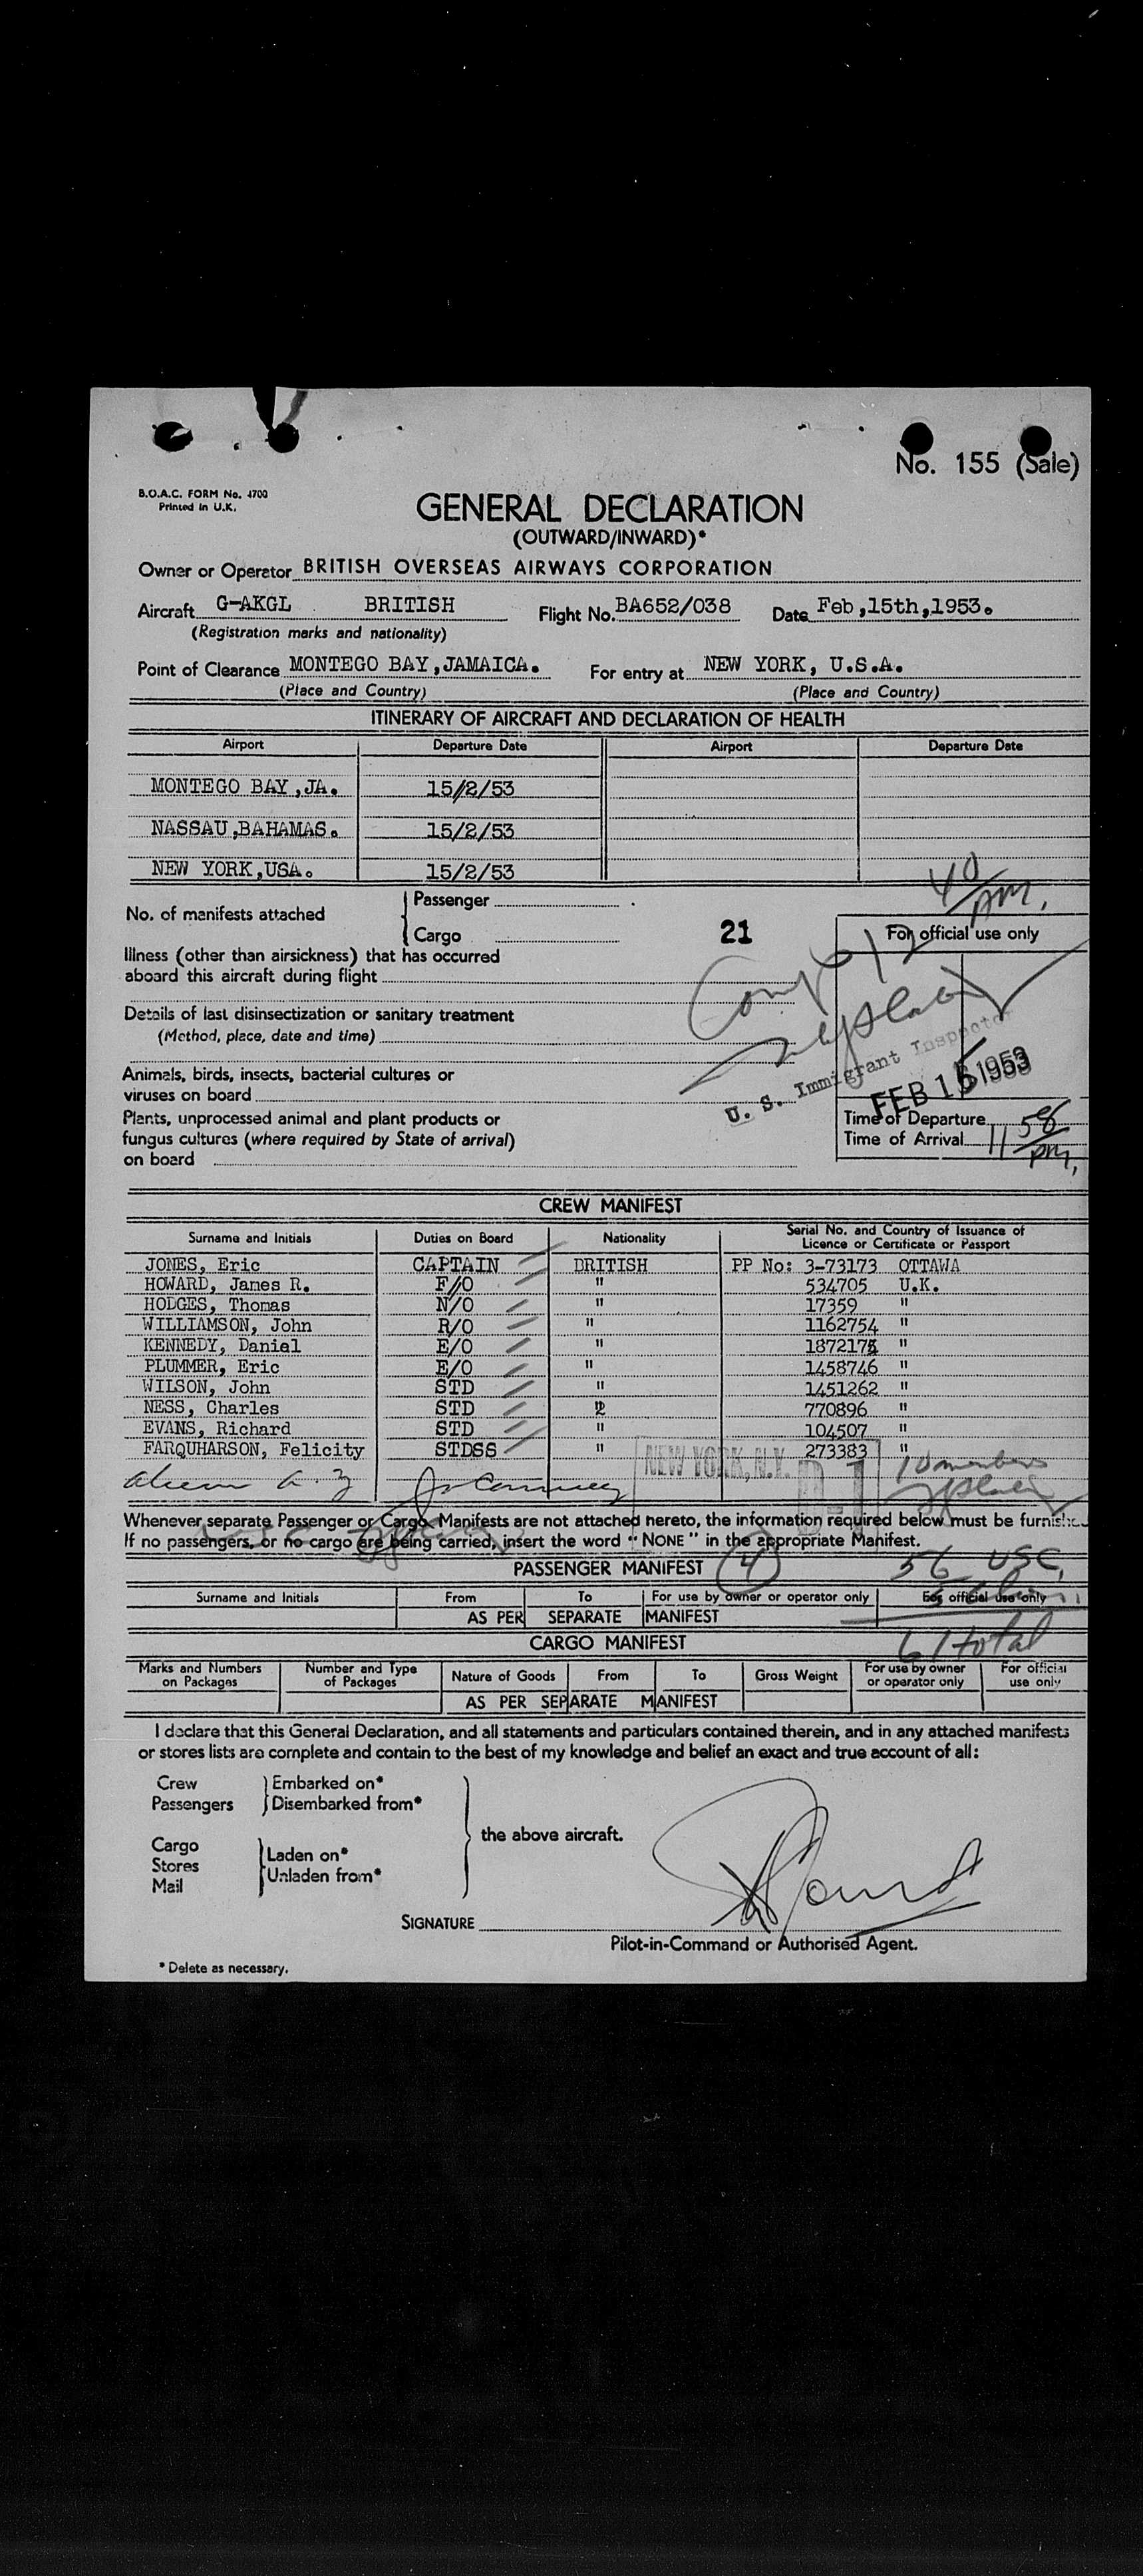 No. 155 (Sale)
B.O.A.C. FORM No. 4700
Printed in U.K.
GENERAL DECLARATION
(OUTWARD/INWARD)*
Owner or Operator BRITISH OVERSEAS AIRWAYS CORPORATION
Aircraft G-AKGL BRITISH Flight No. BA652/038 Date Feb,15th,1953.
(Registration marks and nationality)
Point of Clearance MONTEGO BAY,JAMAICA. For entry at NEW YORK, U.S.A.
(Place and Country) (Place and Country)
ITINERARY OF AIRCRAFT AND DECLARATION OF HEALTH
Airport Departure Date Airport Departure Date
MONTEGO BAY,JA. 15/2/53
NASSAU,BAHAMAS. 15/2/53
NEW YORK,USA. 15/2/53
40/pm.
No. of manifests attached
Passenger
Cargo
21
For official use only
Illness (other than airsickness) that has occurred
aboard this aircraft during flight
Details of last disinsectization or sanitary treatment
(Method, place, date and time)
Animals, birds, insects, bacterial cultures or
viruses on board
U. S. Immigrant Inspector
FEB 15 1953
Plants, unprocessed animal and plant products or
fungus cultures (where required by State of arrival)
on board
Time of Departure
Time of Arrival 11 58/pm,
CREW MANIFEST
Surname and Initials Duties on Board Nationality Serial No. and Country of Issuance of
Licence or Certificate or Passport
JONES, Eric CAPTAIN BRITISH PP No: 3-73173 OTTAWA
HOWARD, James R. F/O " 534705 U.K.
HODGES, Thomas N/O " 17359 "
WILLIAMSON, John R/O " 1162754 "
KENNEDY, Daniel E/O " "
PLUMMER, Eric E/O " 1458746 "
WILSON, John STD " 1451262 "
NESS, Charles STD 770896 "
EVANS, Richard STD " 104507 "
FARQUHARSON, Felicity STDSS " 273383 "
NEW YORK, N.Y. D-1
10 members
Whenever separate Passenger or Cargo Manifests are not attached hereto, the information required below must be furnished.
If no passengers, or no cargo are being carried, insert the word "NONE" in the appropriate Manifest.
PASSENGER MANIFEST (4) 56 USC,
Surname and Initials From To For use by owner or operator only For official use only
AS PER SEPARATE MANIFEST
61 total
CARGO MANIFEST
Marks and Numbers on Packages Number and Type of Packages Nature of Goods From To Gross Weight For use by owner or operator only For official use only
AS PER SEPARATE MANIFEST
I declare that this General Declaration, and all statements and particulars contained therein, and in any attached manifests
or stores lists are complete and contain to the best of my knowledge and belief an exact and true account of all:
Crew
Passengers
Embarked on*
Disembarked from*
Cargo
Stores
Mail
Laden on*
Unladen from*
the above aircraft.
SIGNATURE
Pilot-in-Command or Authorised Agent.
* Delete as necessary.